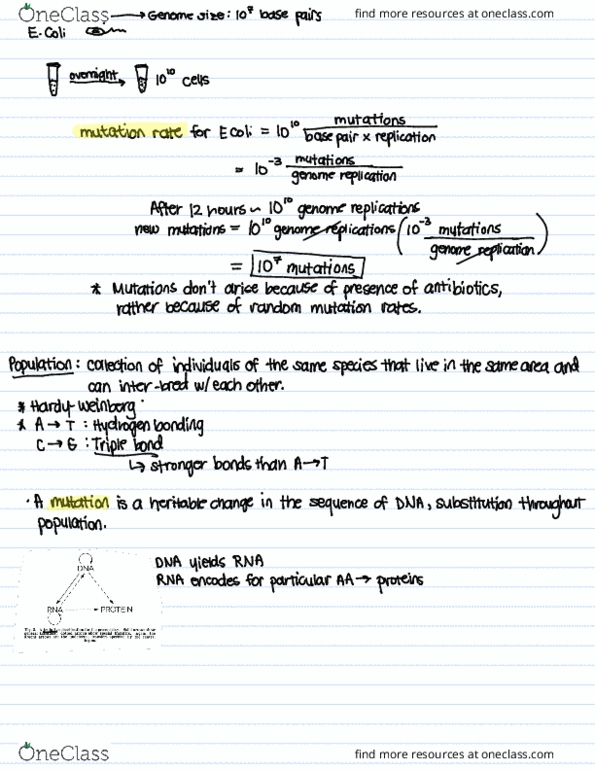 OneClass → Genome size: 10⁷ base pairs find more resources at oneclass.com
E. Coli
overnight → 10¹⁰ cells
mutation rate for E coli = 10¹⁰ mutations / base pair x replication
= 10⁻³ mutations / genome replication
After 12 hours ~ 10¹⁰ genome replications
new mutations = 10¹⁰ genome replications (10⁻³ mutations / genome replication)
= 10⁷ mutations
* Mutations don't arice because of presence of antibiotics,
rather because of random mutation rates.
Population: collection of individuals of the same species that live in the same area and
can inter-bred w/each other.
* Hardy-Weinberg
* A → T : Hydrogen bonding
C → G : Triple bond
↳ stronger bonds than A→T
· A mutation is a heritable change in the sequence of DNA, substitution throughout
population.
DNA
RNA PROTEIN
DNA yields RNA
RNA encodes for particular AA → proteins
OneClass find more resources at oneclass.com